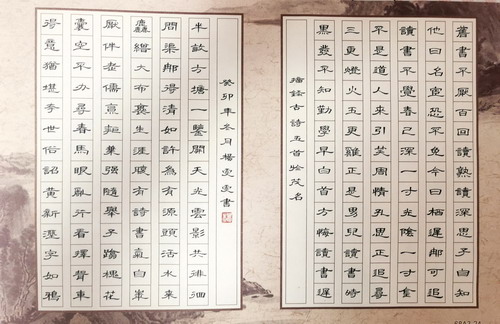 舊書不厭百回讀熟讀深思子自知
他日名宦恐不免今日棲遲那可追
讀書不覺春已深一寸光陰一寸金
不是道人來引笑周情孔思正追尋
三更燈火五更雞正是男兒讀書時
黑髮不知勤學早白首方悔讀書遲
古詩五首於茂名
癸卯年冬月楊雯雯書
半畝方塘一鑒開天光雲影共徘徊
問渠那得清如許為有源頭活水來
麤繒大布裹生涯腹有詩書氣自華
厭伴老儒烹瓠葉強隨舉子踏槐花
囊空不辦尋春馬眼亂行看擇壻車
得意猶堪夸世俗詔黃新溼字如鴉